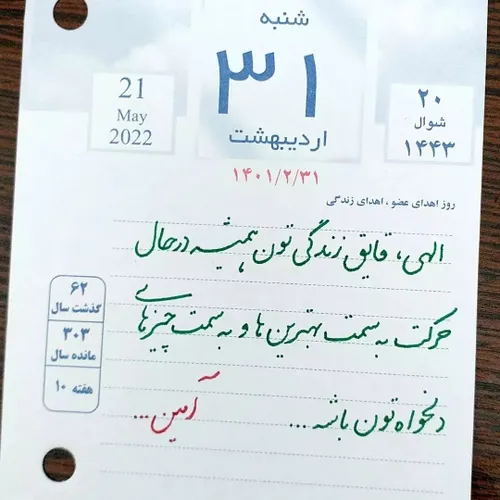 شنبه
۳۱
اردیبهشت
21
May
2022
۲۰
شوال
۱۴۴۳
۱۴۰۱/۲/۳۱
روز اهدای عضو ، اهدای زندگی
الهی، قایق زندگی تون همیشه درحال
حرکت به سمت بهترین ها و به سمت چیزهای
دلخواه تون باشه ... آمین ...
۶۲
گذشت سال
۳۰۳
مانده سال
هفته ۱۰